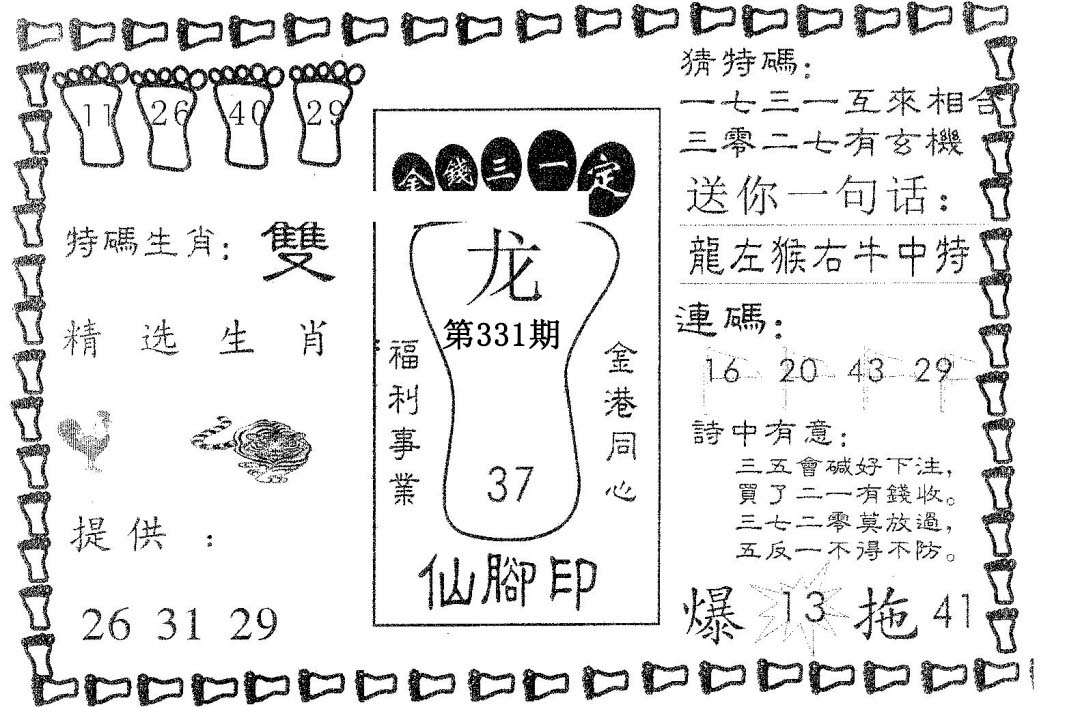 11 26 40 29
特碼生肖：雙
精选生肖
提供：
26 31 29
金錢三一定
龙
第331期
福利事業
金港同心
37
仙腳印
猜特碼：
一七三一互來相合
三零二七有玄機
送你一句话：
龍左猴右牛中特
連碼：
16 20 43 29
詩中有意：
三五會碱好下注，
買了二一有錢收。
三七二零莫放過，
五反一不得不防。
爆 13 拖 41